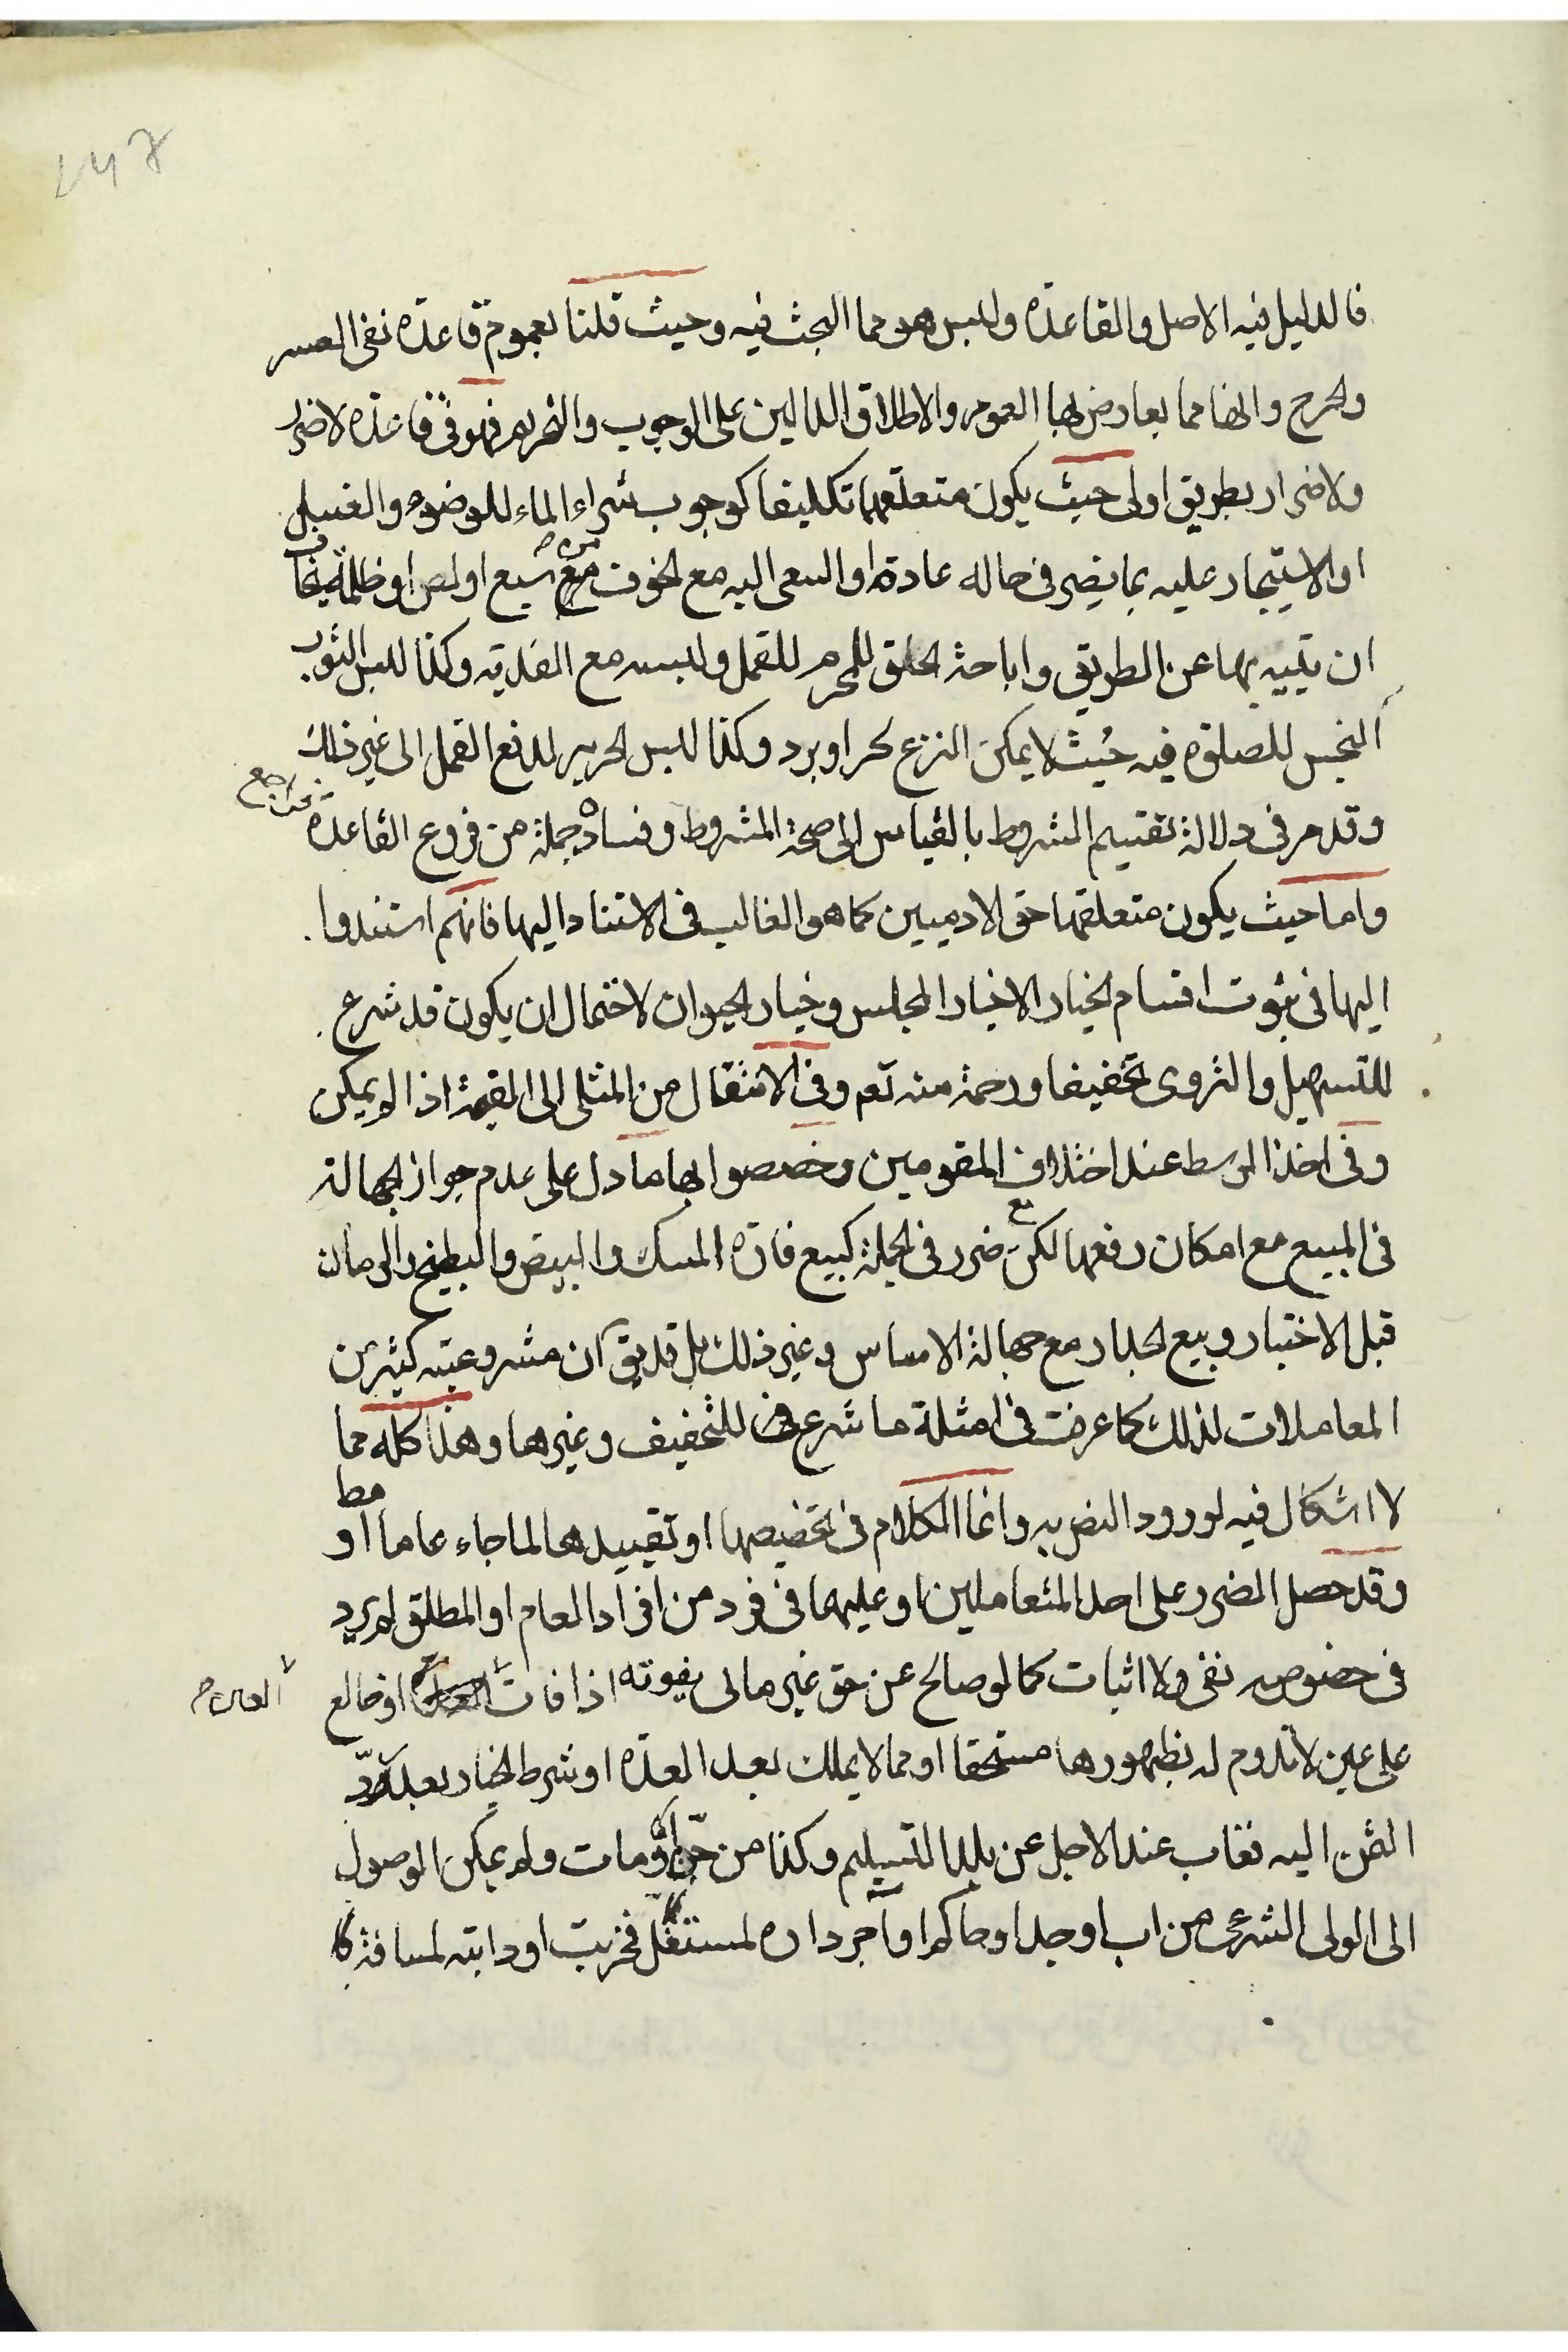 فالدليل فيه الاصل والقاعدة وليس هو مما البحث فيه وحيث قلنا بعموم قاعدة نفى العسر
والحرج وانها مما يعارض بها العموم والاطلاق الدالين على الوجوب والتحريم فهو فى قاعدة لا ضرر
ولا ضرار بطريق اولى حيث يكون متعلقهما تكليفا كوجوب شراء الماء للوضوء والغسل
او الاستيجار عليه بما يضر فى حاله عادة او السعى اليه مع الخوف من سبع او لص او ظلمة يخاف
ان يتيه بها عن الطريق واباحة الحلق للمحرم للقمل ولبسه مع الفدية وكذا لبس الثوب
النجس للصلوة فيه حيث لا يمكن النزع لحر او برد وكذا لبس الحرير لدفع القمل الى غير ذلك
وقد مر فى دلالة تقسيم الشروط بالقياس الى صحة المشروط وفساده جملة من فروع القاعدة فراجع
واما حيث يكون متعلقهما حق الادميين كما هو الغالب فى الاستناد اليها فانهم استندوا
اليها فى ثبوت اقسام الخيار الا خيار المجلس وخيار الحيوان لاحتمال ان يكون قد شرع
للتسهيل والتروى تخفيفا ورحمة منه تعم وفى الانتقال من المثلى الى القيمة اذا لم يمكن
وفى اخذ الوسط عند اختلاف المقومين وخصصوا بها ما دل على عدم جواز الجهالة
فى المبيع مع امكان رفعها لكن مع ضرر فى الجملة كبيع فارة المسك والبيض والبطيخ والرمان
قبل الاختبار وبيع الجدار مع جهالة الاساس وغير ذلك بل قد يق ان مشروعية كثير من
المعاملات لذلك كما عرفت فى امثلة ما شرع للتخفيف وغيرها وهذا كله مما
لا اشكال فيه لورود النص به وانما الكلام فى تخصيصها او تقييدها لما جاء عاما او مط
وقد حصل الضرر على احد المتعاملين او عليهما فى فرد من افراد العام او المطلق لم يرد
فى خصوصه نفى ولا اثبات كما لو صالح عن حق غير مالى يفوته اذا فات او خالع
على عين لا تدوم له بظهورها مستحقا او مما لا يملك بعد العدة او شرط الخيار بعد رد
الثمن اليه فغاب عند الاجل عن بلد التسليم وكذا من جن او مات ولم يمكن الوصول
الى الولى الشرعى من اب او جد او حاكم او آجر داره لمستغل فخربت او دابته لمسافة